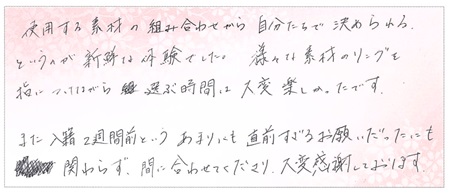 使用する素材の組み合わせから自分たちで決められる、
というのが新鮮な体験でした。様々な素材のリングを
指につけながら選ぶ時間は大変楽しかったです。
また入籍2週間前というあまりにも直前すぎるお願いだったにも
関わらず、間に合わせてくださり、大変感謝しております。